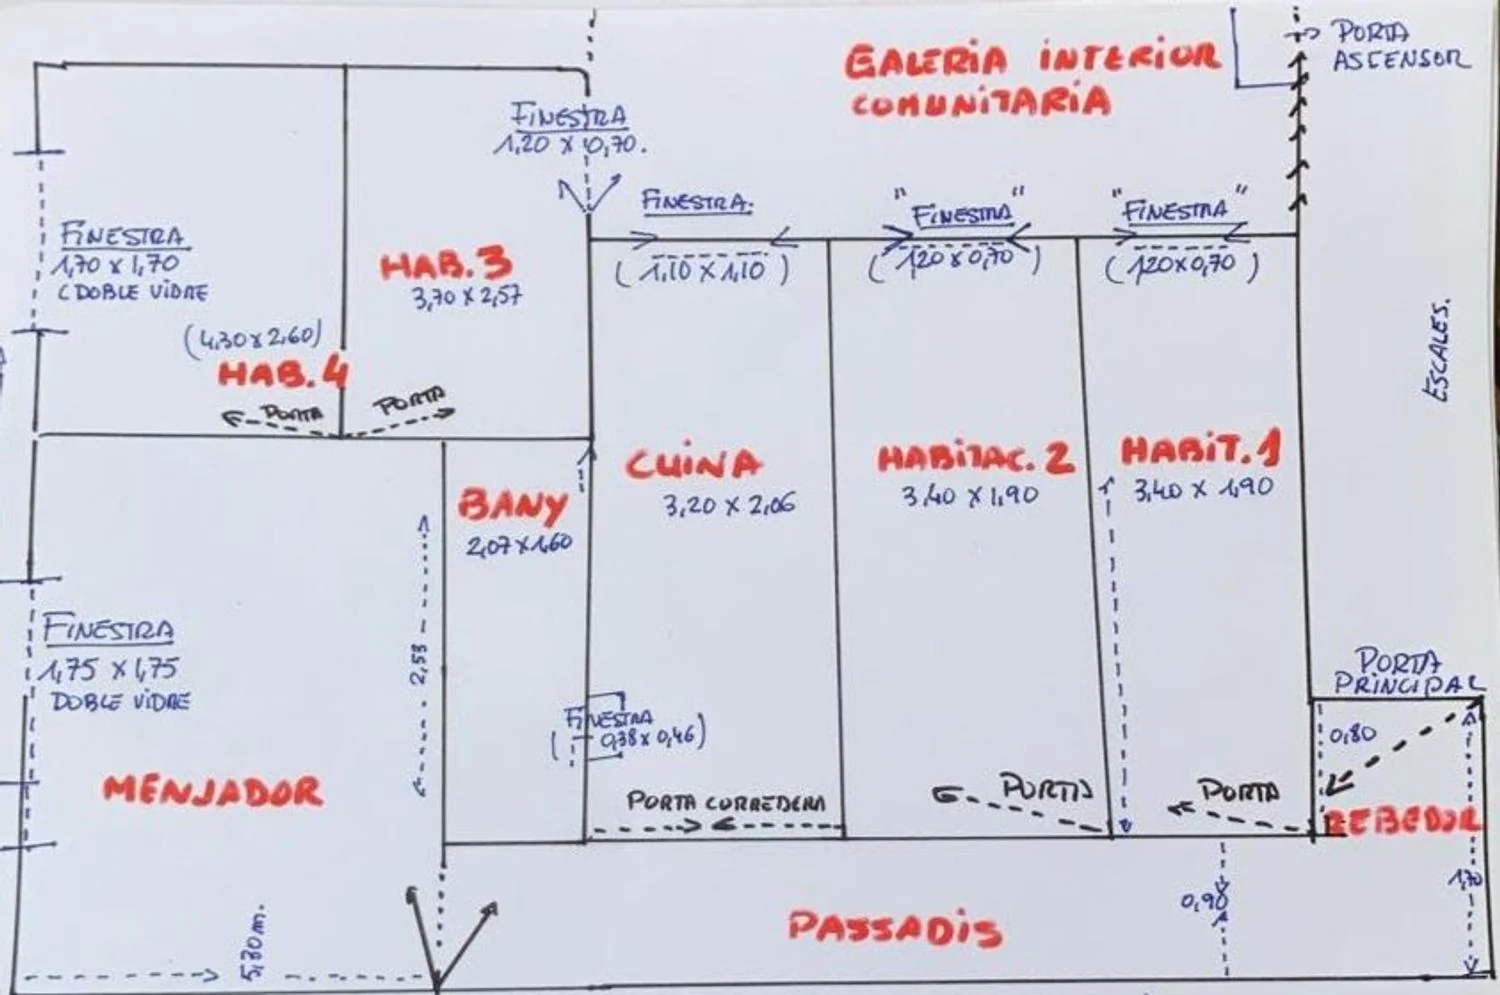 GALERIA INTERIOR
COMUNITARIA
PORTA
ASCENSOR
FINESTRA
1,20 x 0,70.
FINESTRA.
(1,10 x 1,10)
"FINESTRA"
(1,20 x 0,70)
"FINESTRA"
(1,20 x 0,70)
FINESTRA
1,70 x 1,70
(DOBLE VIDRE
HAB. 3
3,70 x 2,57
(4,30 x 2,60)
HAB. 4
PORTA
PORTA
ESCALES.
CUINA
3,20 x 2,06
HABITAC. 2
3,40 x 1,90
HABIT. 1
3,40 x 1,90
BANY
2,07 x 1,60
FINESTRA
1,75 x 1,75
DOBLE VIDRE
2,53
FINESTRA
(0,38 x 0,46)
PORTA
PRINCIPAL
0,80
MENJADOR
PORTA CORREDERA
PORTA
PORTA
REBEDOR
1,70
0,90
PASSADIS
5,30 m.